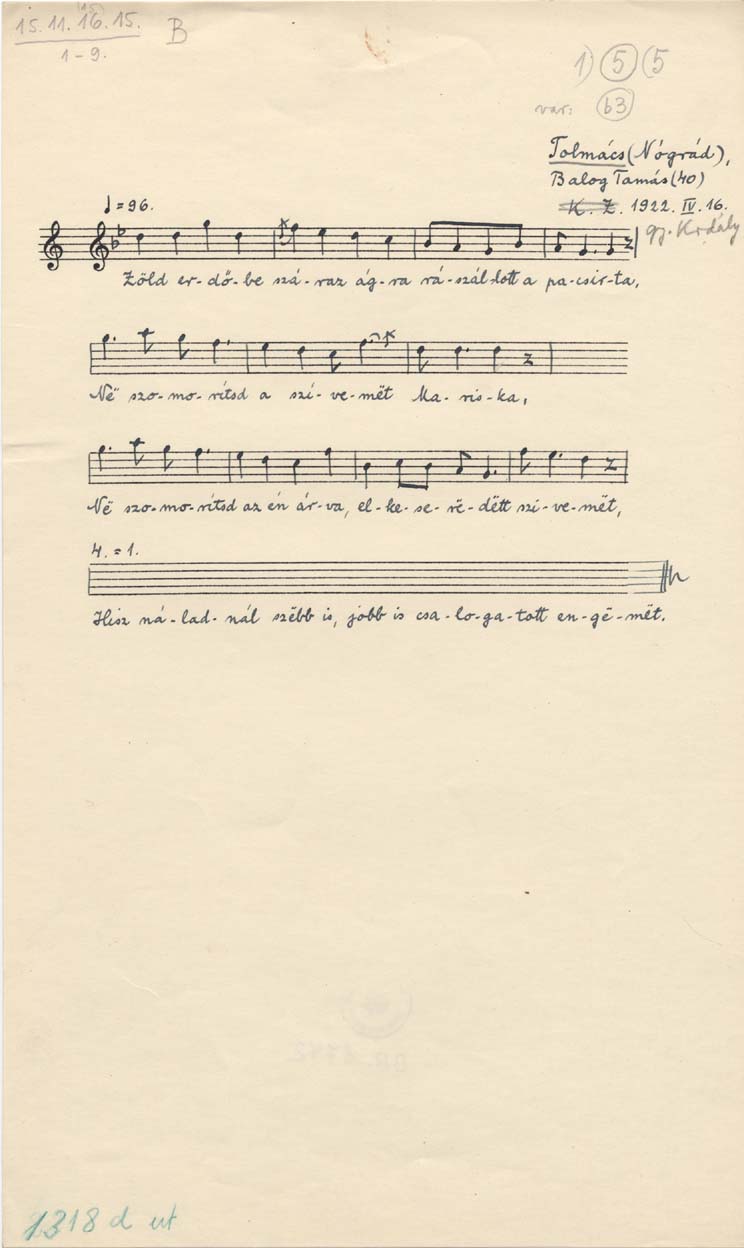 (15)
15. 11. 16. 15. B
1-9.
1) 5 (5
var: 63
Tolmács (Nógrád),
Balog Tamás (40)
♩=96. K. Z. 1922. IV. 16.
gy. Kodály
Zöld er-dő-be szá-raz ág-ra rá-szál-lott a pa-csir-ta,
Në szo-mo-rítsd a szí-ve-mët Ma-ris-ka,
Në szo-mo-rítsd az én ár-va, el-ke-se-rë-dëtt szi-ve-mët,
4.=1.
Hisz ná-lad-nál szëbb is, jobb is csa-lo-ga-tott en-gë-mët.
1318 d